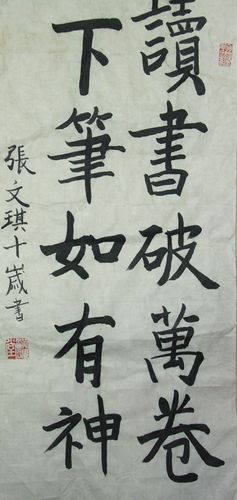 讀書破萬卷
下筆如有神
張文琪十歲書